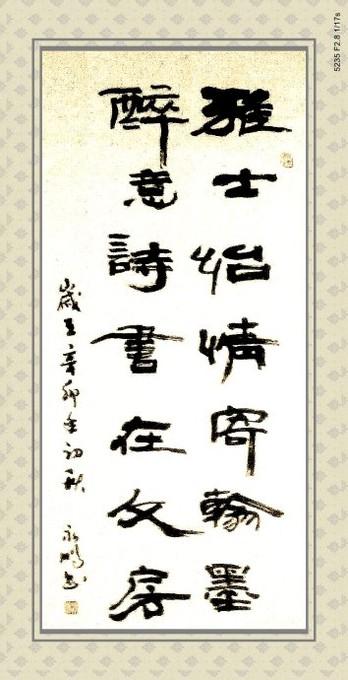 雅士怡情寄翰墨
醉意詩書在文房
歲在辛卯年初秋 永鵬書
5235 F2.8 1/17s